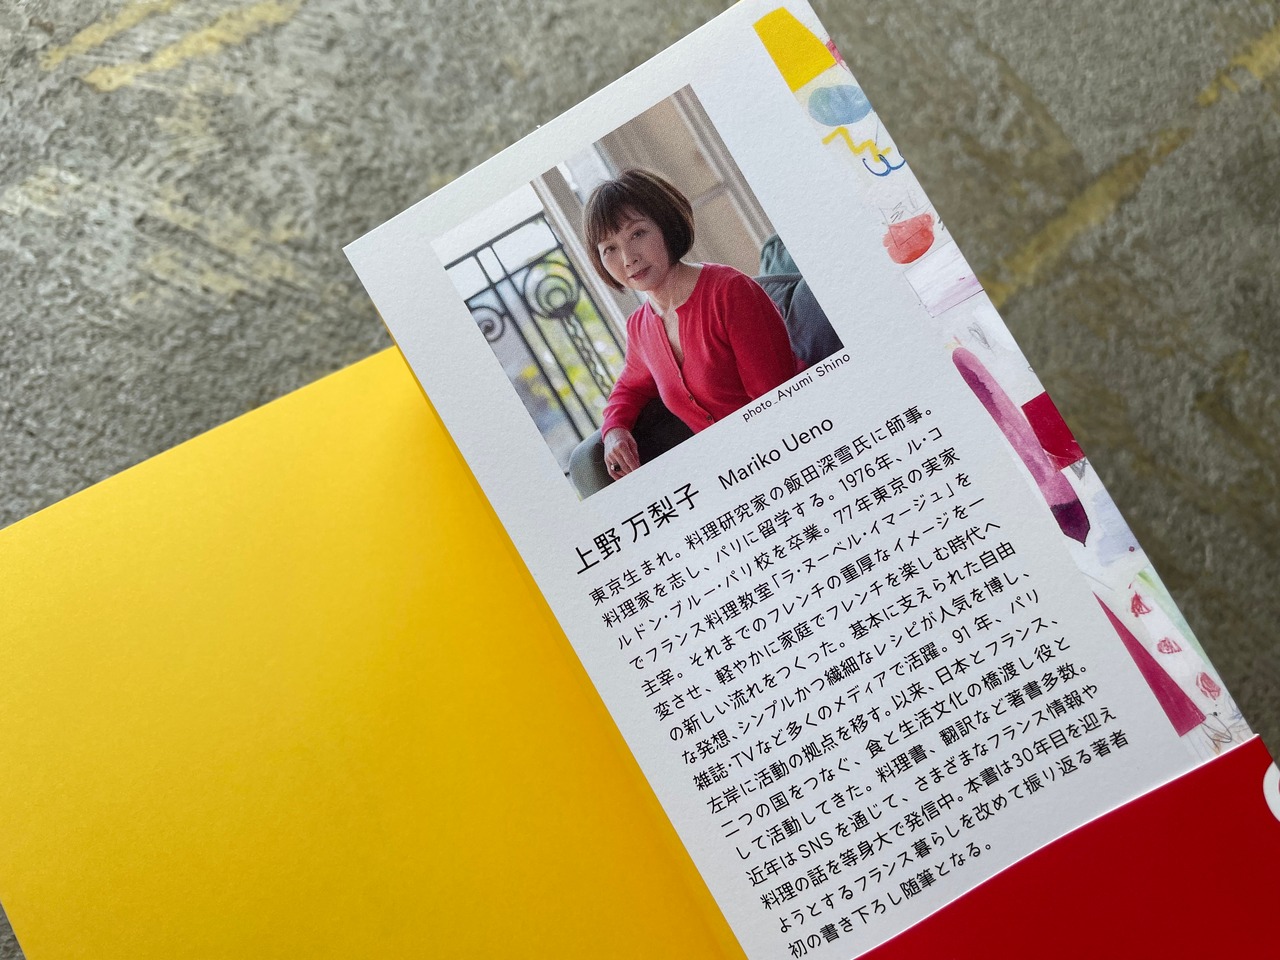 photo_Ayumi Shino
上野 万梨子　Mariko Ueno
東京生まれ。料理研究家の飯田深雪氏に師事。
料理家を志し、パリに留学する。1976年、ル・コ
ルドン・ブルー・パリ校を卒業。77年東京の実家
でフランス料理教室「ラ・ヌーベル・イマージュ」を
主宰。それまでのフレンチの重厚なイメージを一
変させ、軽やかに家庭でフレンチを楽しむ時代へ
の新しい流れをつくった。基本に支えられた自由
な発想、シンプルかつ繊細なレシピが人気を博し、
雑誌・TVなど多くのメディアで活躍。91年、パリ
左岸に活動の拠点を移す。以来、日本とフランス、
二つの国をつなぐ、食と生活文化の橋渡し役と
して活動してきた。料理書、翻訳など著書多数。
近年はSNSを通じて、さまざまなフランス情報や
料理の話を等身大で発信中。本書は30年目を迎え
ようとするフランス暮らしを改めて振り返る著者
初の書き下ろし随筆となる。